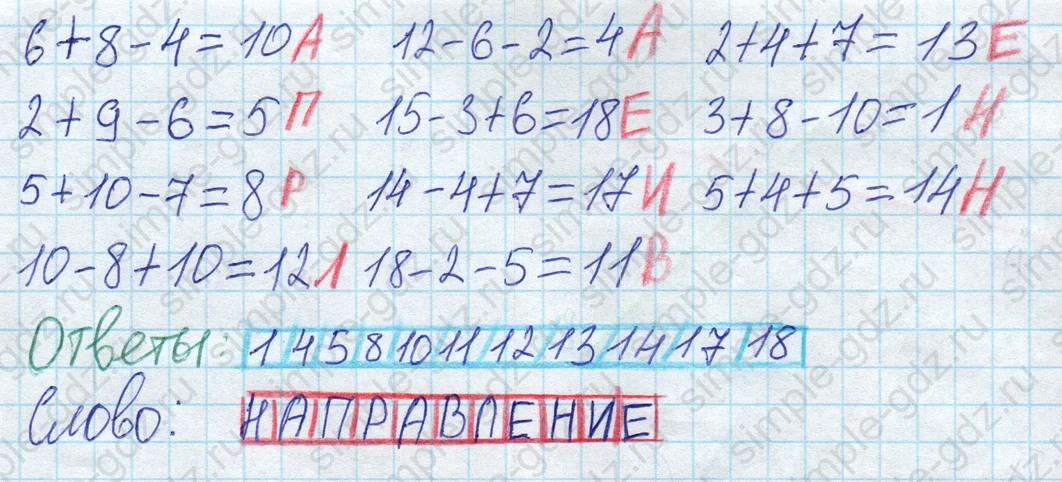 6+8-4=10А 12-6-2=4А 2+4+7=13Е
2+9-6=5П 15-3+6=18Е 3+8-10=1Н
5+10-7=8Р 14-4+7=17И 5+4+5=14Н
10-8+10=12Л 18-2-5=11В
Ответы: 1 4 5 8 10 11 12 13 14 17 18
Слово: НАПРАВЛЕНИЕ
simple-gdz.ru